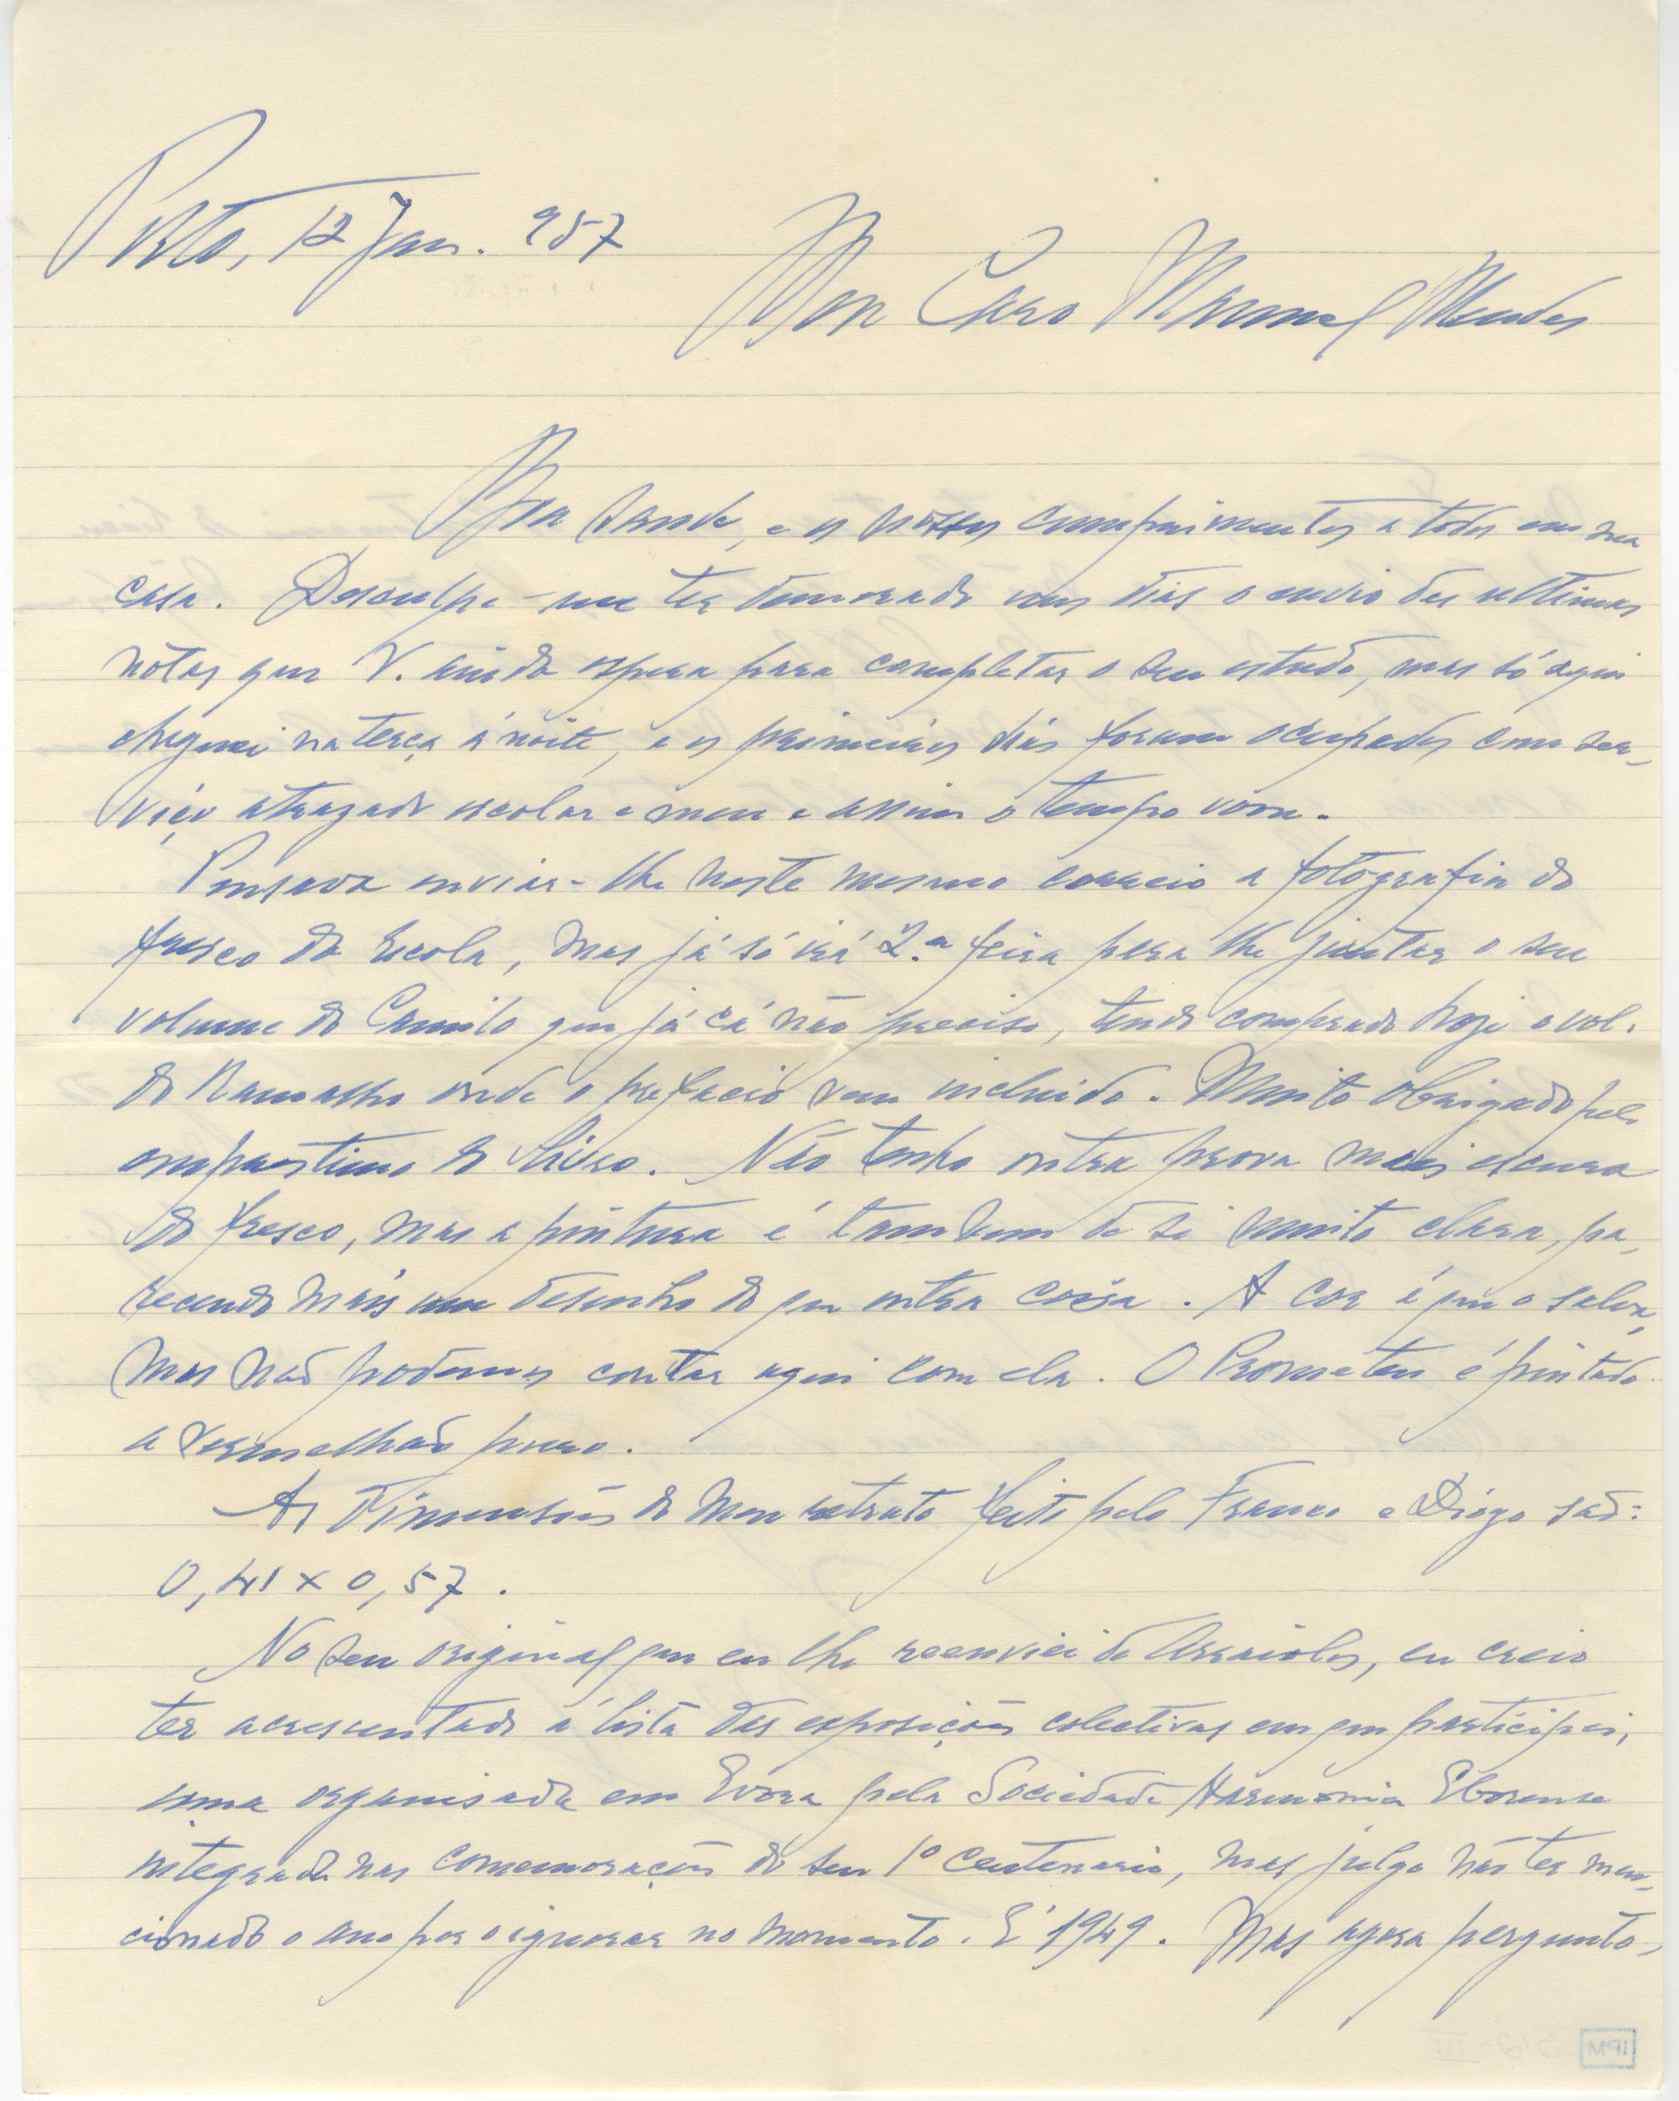 Porto, 12 Jan. 957
Meu Caro Manuel Mendes
Boa saude, e os nossos cumprimentos a todos em sua
casa. Desculpe-me ter demorado uns dias o envio das ultimas
notas que V. ainda espera para completar o seu estudo, mas só aqui
cheguei na terça á noite, e os primeiros dias foram ocupados com ser-
viço atrazado escolar e meu e assim o tempo voou.
Pensava enviar-lhe neste mesmo correio a fotografia do
fresco da Escola, mas já só irá 2.ª feira para lhe juntar o seu
volume do Camilo que já cá não preciso, tendo comprado hoje o vol.
do Ramalho onde o prefacio vem incluido. Muito obrigado pelo
emprestimo do livro. Não tenho outra prova mais escura
do fresco, mas a pintura é tambem de si muito clara, pa-
recendo mais um desenho do que outra coisa. A cor é que o salva,
mas não podemos contar aqui com ela. O Prometeu é pintado
a vermelhão puro.
As dimensões do meu retrato feito pelo Franco e Diogo são:
0,41 x 0,57.
No seu original que eu lhe reenviei de Arraiolos, eu creio
ter acrescentado á lista das exposições colectivas em que participei,
uma organisada em Evora pela Sociedade Harmonia Eborense
integrada nas comemorações do seu 1º centenario, mas julgo não ter men-
cionado o ano por o ignorar no momento. É 1949. Mas agora pergunto-
IPM